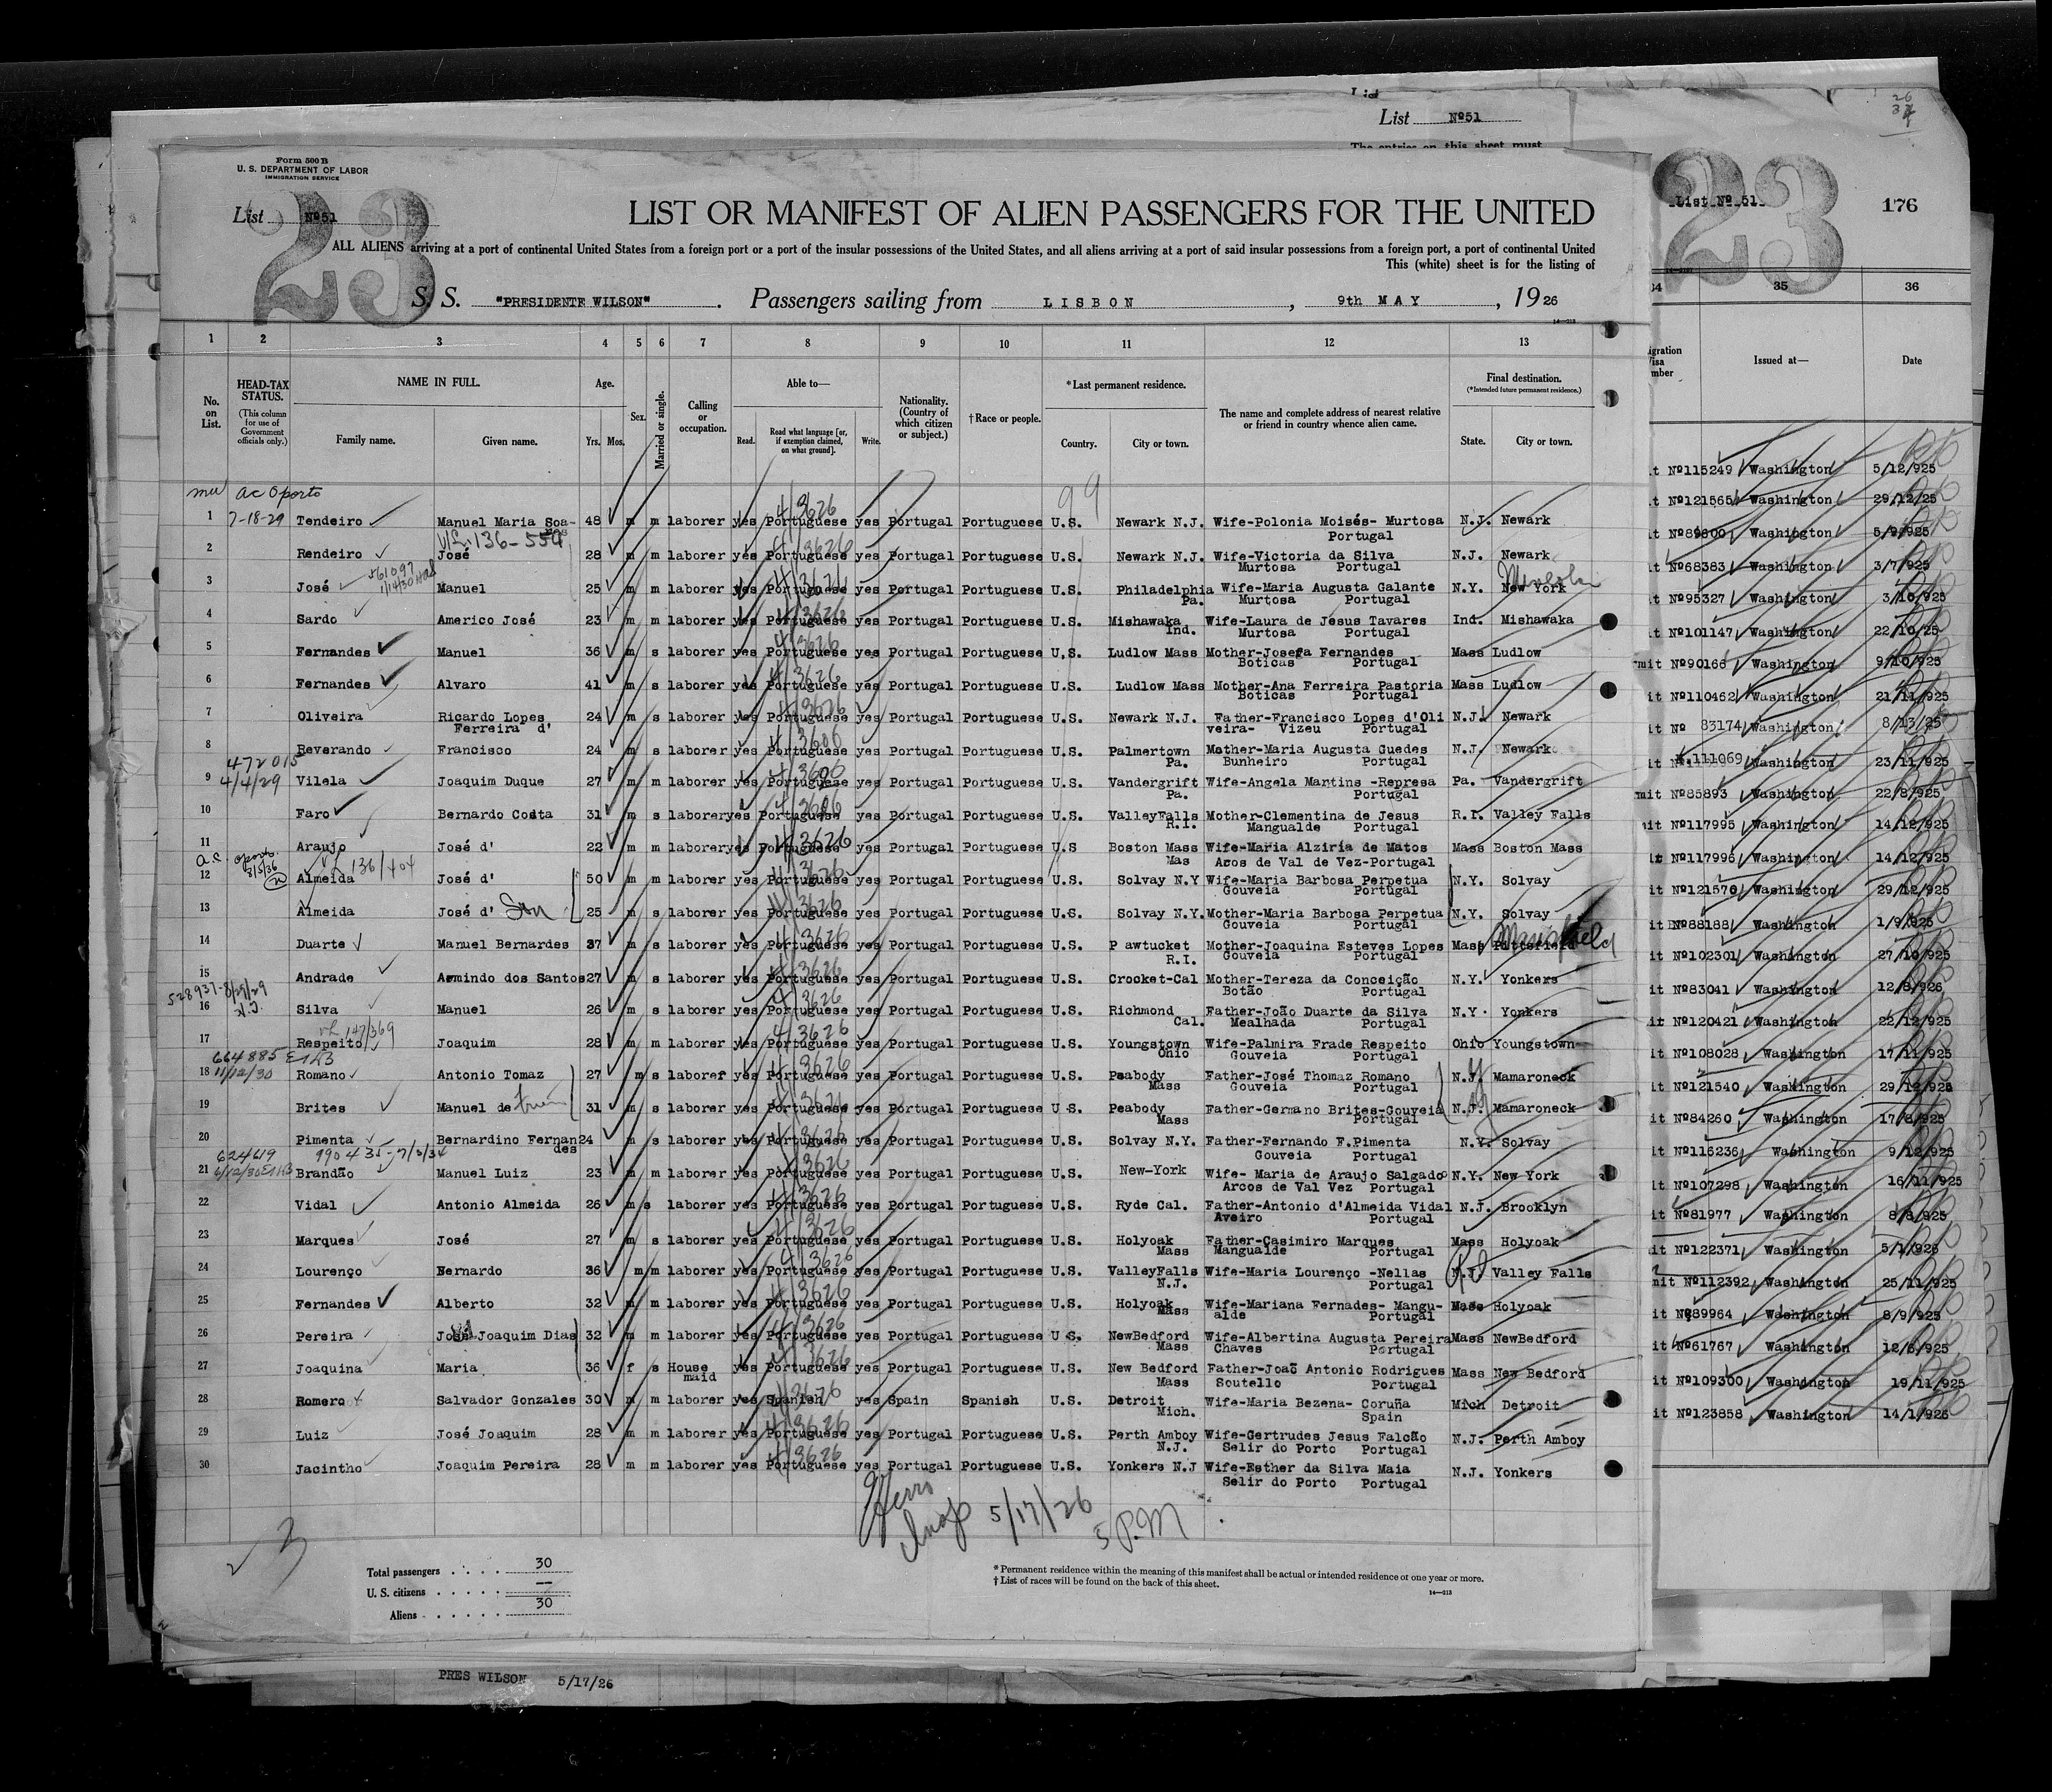 List Nº51
The entries on this sheet must
Form 500 B
U. S. DEPARTMENT OF LABOR
IMMIGRATION SERVICE
23
List Nº51
LIST OR MANIFEST OF ALIEN PASSENGERS FOR THE UNITED
ALL ALIENS arriving at a port of continental United States from a foreign port or a port of the insular possessions of the United States, and all aliens arriving at a port of said insular possessions from a foreign port, a port of continental United
This (white) sheet is for the listing of
S. S. "PRESIDENTE WILSON". Passengers sailing from LISBON, 9th MAY, 1926
14—213
1 2 3 4 5 6 7 8 9 10 11 12 13
No. on List.
HEAD-TAX STATUS.
(This column for use of Government officials only.)
NAME IN FULL.
Family name. Given name.
Age.
Yrs. Mos.
Sex.
Married or single.
Calling or occupation.
Able to—
Read. Read what language [or, if exemption claimed, on what ground]. Write.
Nationality. (Country of which citizen or subject.)
†Race or people.
*Last permanent residence.
Country. City or town.
The name and complete address of nearest relative or friend in country whence alien came.
Final destination.
(*Intended future permanent residence.)
State. City or town.
ac Oporto
99
1 7-18-29 Tendeiro Manuel Maria Soa- 48 m m laborer yes Portuguese yes Portugal Portuguese U.S. Newark N.J. Wife-Polonia Moisés- Murtosa N.J. Newark
Portugal
136-554
2 Rendeiro José 28 m m laborer yes Portuguese yes Portugal Portuguese U.S. Newark N.J. Wife-Victoria da Silva N.J. Newark
Murtosa Portugal
561097
1/14/30
3 José Manuel 25 m m laborer yes Portuguese yes Portugal Portuguese U.S. Philadelphia Wife-Maria Augusta Galante N.Y. New York
Pa. Murtosa Portugal
4 Sardo Americo José 23 m m laborer yes Portuguese yes Portugal Portuguese U.S. Mishawaka Wife-Laura de Jesus Tavares Ind. Mishawaka
Ind. Murtosa Portugal
5 Fernandes Manuel 36 m s laborer yes Portuguese yes Portugal Portuguese U.S. Ludlow Mass Mother-Josefa Fernandes Mass Ludlow
Boticas Portugal
6 Fernandes Alvaro 41 m s laborer yes Portuguese yes Portugal Portuguese U.S. Ludlow Mass Mother-Ana Ferreira Pastoria Mass Ludlow
Boticas Portugal
7 Oliveira Ricardo Lopes 24 m s laborer yes Portuguese yes Portugal Portuguese U.S. Newark N.J. Father-Francisco Lopes d'Oli N.J. Newark
Ferreira d' veira- Vizeu Portugal
8 Reverando Francisco 24 m s laborer yes Portuguese yes Portugal Portuguese U.S. Palmertown Mother-Maria Augusta Guedes N.J. Newark
Pa. Bunheiro Portugal
472015
9 4/4/29 Vilela Joaquim Duque 27 m m laborer yes Portuguese yes Portugal Portuguese U.S. Vandergrift Wife-Angela Mantins -Represa Pa. Vandergrift
Pa. Portugal
10 Faro Bernardo Costa 31 m s laborer yes Portuguese yes Portugal Portuguese U.S. ValleyFalls Mother-Clementina de Jesus R.I. Valley Falls
R.I. Mangualde Portugal
11 Araujo José d' 22 m m laborer yes Portuguese yes Portugal Portuguese U.S Boston Mass Wife-Maria Alziria de Matos Mass Boston Mass
Mas Arcos de Val de Vez-Portugal
a.c. oporto. 8/5/36 136/404
12 Almeida José d' 50 m m laborer yes Portuguese yes Portugal Portuguese U.S. Solvay N.Y Wife-Maria Barbosa Perpetua N.Y. Solvay
Gouveia Portugal
13 Almeida José d' Son 25 m s laborer yes Portuguese yes Portugal Portuguese U.S. Solvay N.Y. Mother-Maria Barbosa Perpetua N.Y. Solvay
Gouveia Portugal
14 Duarte Manuel Bernardes 37 m s laborer yes Portuguese yes Portugal Portuguese U.S. P awtucket Mother-Joaquina Esteves Lopes Mass Mansfield
R.I. Gouveia Portugal
15 Andrade Armindo dos Santos 27 m s laborer yes Portuguese yes Portugal Portuguese U.S. Crocket-Cal Mother-Tereza da Conceição N.Y. Yonkers
Botão Portugal
528937-8/29/29
N.J.
16 Silva Manuel 26 m s laborer yes Portuguese yes Portugal Portuguese U.S. Richmond Father-João Duarte da Silva N.Y. Yonkers
Cal. Mealhada Portugal
147/369
17 Respeito Joaquim 28 m m laborer yes Portuguese yes Portugal Portuguese U.S. Youngstown Wife-Palmira Frade Respeito Ohio Youngstown
Ohio Gouveia Portugal
664885
18 11/12/30 Romano Antonio Tomaz 27 m s laborer yes Portuguese yes Portugal Portuguese U.S. Peabody Father-José Thomaz Romano N.J. Mamaroneck
Mass Gouveia Portugal
19 Brites Manuel de 31 m s laborer yes Portuguese yes Portugal Portuguese U S. Peabody Father-Germano Brites-Gouveia N.J. Mamaroneck
Mass Portugal
20 Pimenta Bernardino Fernan 24 m s laborer yes Portuguese yes Portugal Portuguese U.S. Solvay N.Y. Father-Fernando F.Pimenta N.Y. Solvay
des Gouveia Portugal
624619 990435-7/3/34
21 6/12/30 Brandão Manuel Luiz 23 m m laborer yes Portuguese yes Portugal Portuguese U.S. New-York Wife- Maria de Araujo Salgado N.Y. New York
Arcos de Val Vez Portugal
22 Vidal Antonio Almeida 26 m s laborer yes Portuguese yes Portugal Portuguese U.S. Ryde Cal. Father-Antonio d'Almeida Vidal N.J. Brooklyn
Aveiro Portugal
23 Marques José 27 m s laborer yes Portuguese yes Portugal Portuguese U.S. Holyoak Father-Casimiro Marques Mass Holyoak
Mass Mangualde Portugal
24 Lourenço Bernardo 36 m m laborer yes Portuguese yes Portugal Portuguese U.S. ValleyFalls Wife-Maria Lourenço -Nellas N.J. Valley Falls
N.J. Portugal
25 Fernandes Alberto 32 m m laborer yes Portuguese yes Portugal Portuguese U.S. Holyoak Wife-Mariana Fernades- Mangu- Mass Holyoak
Mass alde Portugal
26 Pereira José Joaquim Dias 32 m m laborer yes Portuguese yes Portugal Portuguese U.S. NewBedford Wife-Albertina Augusta Pereira Mass NewBedford
Mass Chaves Portugal
27 Joaquina Maria 36 f s House yes Portuguese yes Portugal Portuguese U.S. New Bedford Father-Joaõ Antonio Rodrigues Mass New Bedford
maid Mass Soutello Portugal
28 Romero Salvador Gonzales 30 m m laborer yes Spanish yes Spain Spanish U.S. Detroit Wife-Maria Bezena- Coruña Mich Detroit
Mich. Spain
29 Luiz José Joaquim 28 m m laborer yes Portuguese yes Portugal Portuguese U.S. Perth Amboy Wife-Gertrudes Jesus Falcão N.J. Perth Amboy
N.J. Selir do Porto Portugal
30 Jacintho Joaquim Pereira 28 m m laborer yes Portuguese yes Portugal Portuguese U.S. Yonkers N.J Wife-Esther da Silva Maia N.J. Yonkers
Selir do Porto Portugal
5/17/26
5 P.M
Total passengers 30
U. S. citizens —
Aliens 30
*Permanent residence within the meaning of this manifest shall be actual or intended residence of one year or more.
†List of races will be found on the back of this sheet.
14—213
PRES WILSON 5/17/26
23
List Nº 51
176
34 35 36
Issued at— Date
it Nº115249 Washington 5/12/925
it Nº121565 Washington 29/12/25
it Nº89800 Washington 5/9/925
it Nº68383 Washington 3/7/925
it Nº95327 Washington 3/10/925
it Nº101147 Washington 22/10/25
mit Nº90166 Washington 9/10/925
it Nº110462 Washington 21/11/925
it Nº 83174 Washington 8/13/25
it 111069 Washington 23/11/925
mit Nº85893 Washington 22/8/925
it Nº117995 Washington 14/12/925
it Nº117996 Washington 14/12/925
it Nº121570 Washington 29/12/925
it Nº88188 Washington 1/9/925
it Nº102301 Washington 27/10/925
it Nº83041 Washington 12/8/926
it Nº120421 Washington 22/12/925
it Nº108028 Washington 17/11/925
it Nº121540 Washington 29/12/925
it Nº84260 Washington 17/8/925
it Nº116236 Washington 9/12/925
it Nº107298 Washington 16/11/925
it Nº81977 Washington 8/8/925
it Nº122371 Washington 5/1/926
mit Nº112392 Washington 25/11/925
it Nº89964 Washington 8/9/925
it Nº61767 Washington 12/6/925
it Nº109300 Washington 19/11/925
it Nº123858 Washington 14/1/926